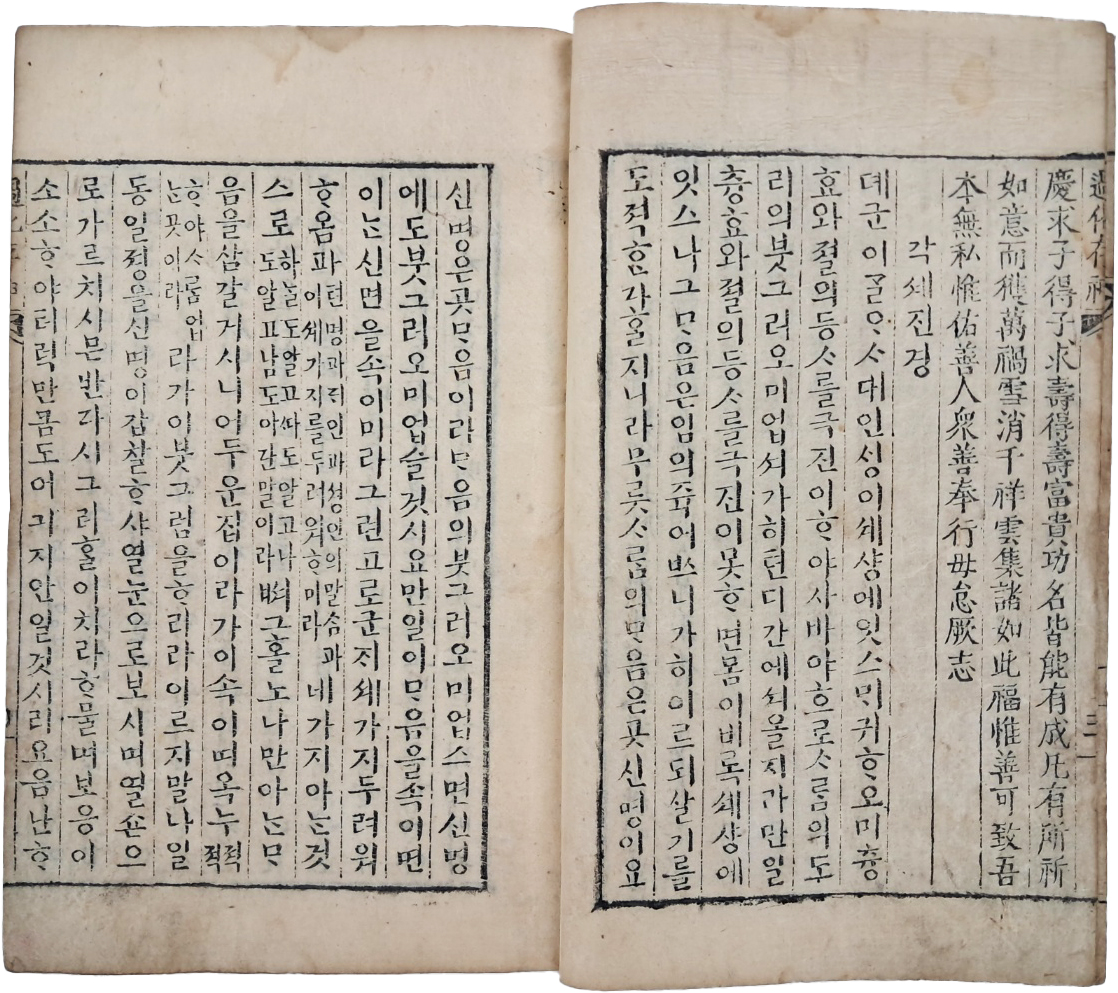 過化存神
慶求子得子求壽得壽富貴功名皆能有成凡有所祈
如意而獲萬禍雪消千祥雲集諸如此福惟善可致吾
本無私惟佑善人衆善奉行毋怠厥志
각셰진경
뎨군이ᄀᆞᆯᄋᆞᄉᆞ대인성이셰샹에잇스ᄆᆡ귀ᄒᆞ오미츙
효와졀의등ᄉᆞ를극진이ᄒᆞ야사바야흐로ᄉᆞᄅᆞᆷ의도
리의붓그러오미업셔가히텬디간에셔올지라만일
츙효와졀의등ᄉᆞ를극진이못ᄒᆞ면몸이비록셰샹에
잇스나그ᄆᆞᄋᆞᆷ은임의죽어ᄡᅳ니가히이르되살기를
도적ᄒᆞᆷ갓흘지니라무릇ᄉᆞᄅᆞᆷ의ᄆᆞᄋᆞᆷ은곳신명이요
신명은곳ᄆᆞᄋᆞᆷ이라ᄆᆞᄋᆞᆷ의붓그러오미업스면신명
에도붓그러오미업슬것시요만일이ᄆᆞᄋᆞᆷ을속이면
이ᄂᆞᆫ신면을속이미라그런고로군ᄌᆞ셰가지두려워
ᄒᆞ옴과텬명과ᄃᆡ인과셩인의말ᄉᆞᆷ과이셰가지를두려워ᄒᆞ미라네가지아ᄂᆞᆫ것
스로하ᄂᆞᆯ도알고ᄯᅡ도알고나도알고남도아단말이라ᄡᅥ그홀노나만아ᄂᆞᆫᄆᆞ
음을삼갈거시니어두운집이라가이속이며옥누젹젹
ᄒᆞ야ᄉᆞ룸업ᄂᆞᆫ곳이라라가이붓그럼을ᄒᆞ리라이르지말나일
동일졍을신명이감찰ᄒᆞ샤열눈으로보시며열손으
로가르치시믄반다시그러홀이치라ᄒᆞ물며보응이
소소ᄒᆞ야터럭만콤도어긔지안일것시리요음난ᄒᆞ